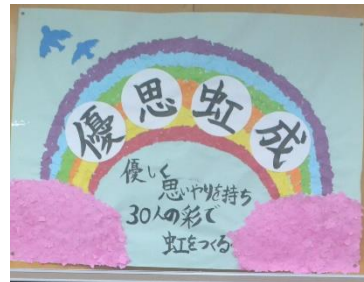 優思虹成
優しく
思いやりを持ち
30人の彩で
虹をつくる